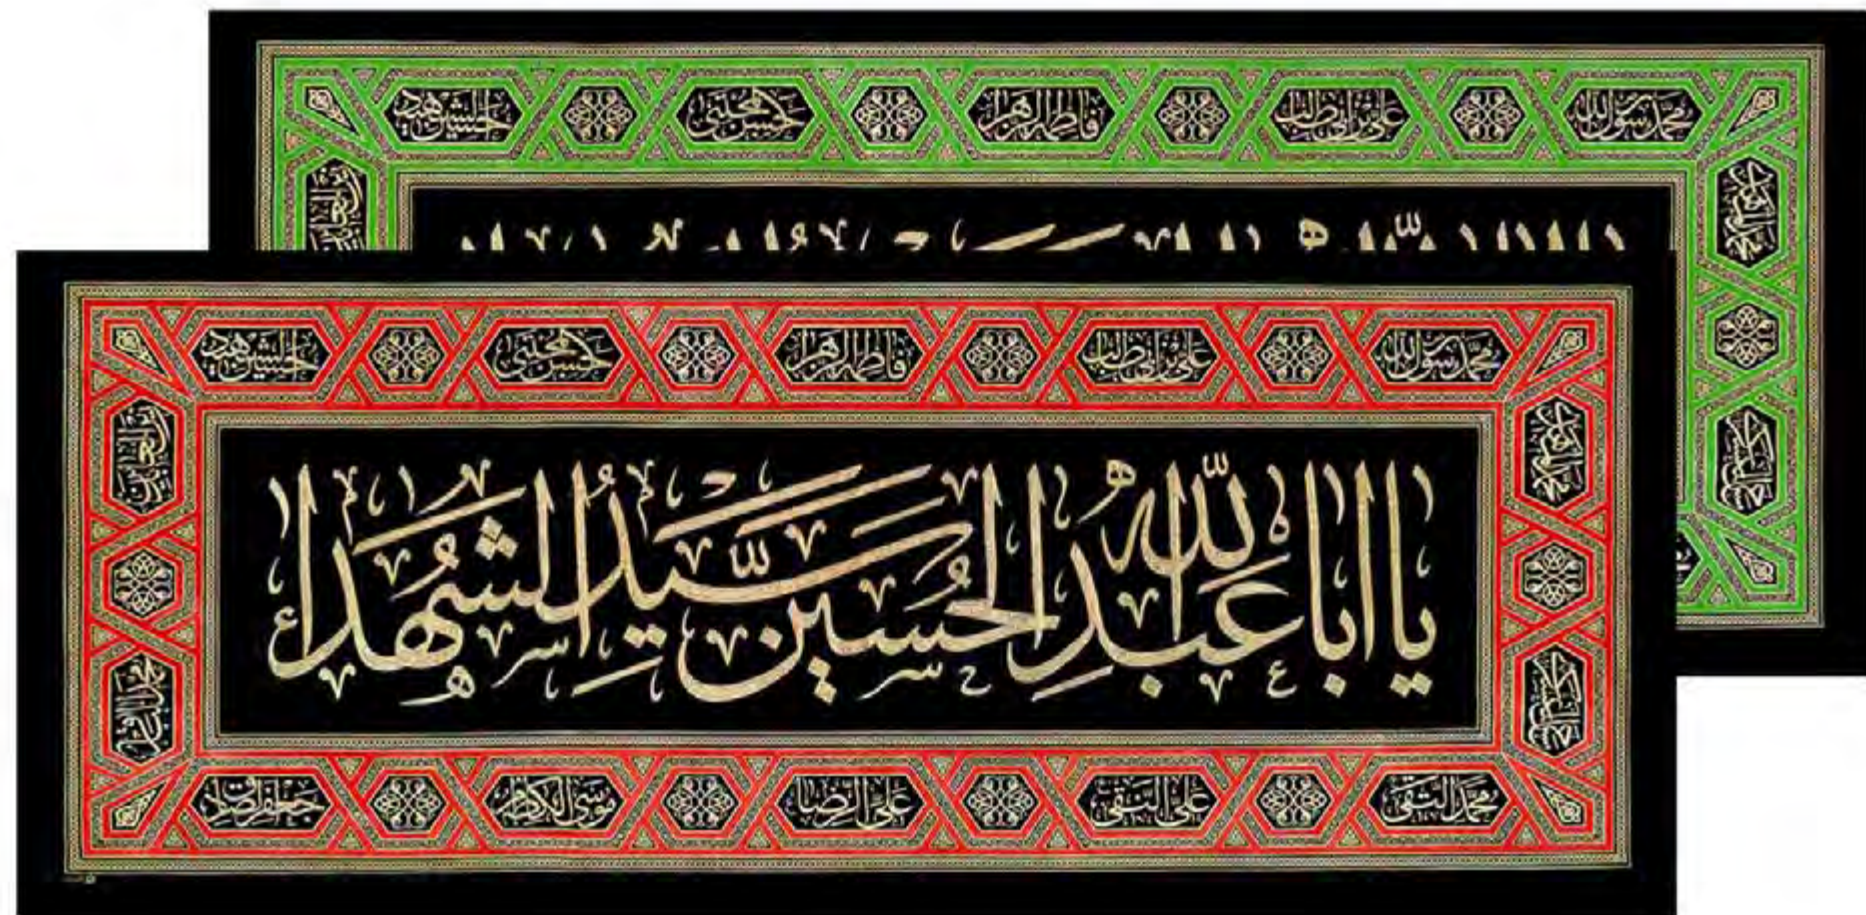 محمد رسول الله
علی بن ابی طالب
فاطمه الزهرا
حسن مجتبی
حسین الشهید
محمد رسول الله
علی بن ابی طالب
فاطمه الزهرا
حسن مجتبی
حسین الشهید
یا اباعبدالله الحسین سید الشهدا
زین العابدین
محمد الباقر
محمد التقی
علی النقی
علی الرضا
موسی الکاظم
جعفر الصادق